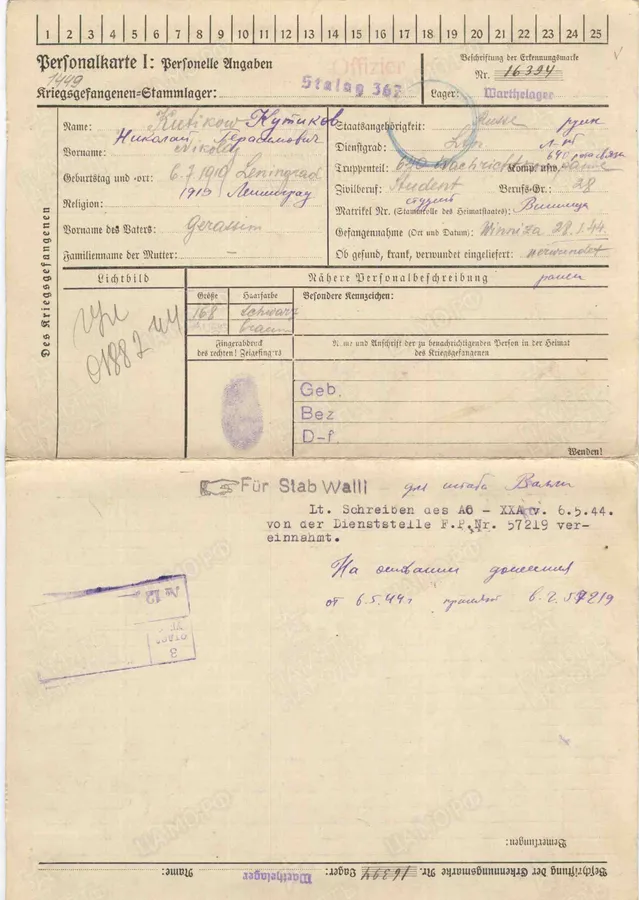 1 2 3 4 5 6 7 8 9 10 11 12 13 14 15 16 17 18 19 20 21 22 23 24 25
Personalkarte I: Personelle Angaben
1449
Kriegsgefangenen=Stammlager:
Offizier
Stalag 367
Beschriftung der Erkennungsmarke
Nr. 16394
Lager: Warthelager
Des Kriegsgefangenen
Name: Kutikow Кутиков
Николай Герасимович
Vorname: Nikolaj
Geburtstag und =ort: 6.7.1919 Leningrad
1919 Ленинград
Religion:
Vorname des Vaters: Gerassim
Familienname der Mutter: –
Staatsangehörigkeit: Russe русск
Dienstgrad: Ltn л-т
640
Truppenteil: 640 Nachrichten Komp. usw.
Zivilberuf: Student Berufs-Gr.: 28
студент
Matrikel Nr. (Stammrolle des Heimatstaates): Винница
Gefangennahme (Ort und Datum): Winniza 28.1.44.
Ob gesund, krank, verwundet eingeliefert: verwundet
ранен
Lichtbild
Nähere Personalbeschreibung
Größe Haarfarbe Besondere Kennzeichen:
168 schwarz
braun
Fingerabdruck
des rechten! Zeigefingers
Name und Anschrift der zu benachrichtigenden Person in der Heimat
des Kriegsgefangenen
Geb.
Bez
D-f.
Wenden!
Für Stab Walli для штаба Валли
Lt. Schreiben des AO - XXA v. 6.5.44.
von der Dienststelle F.P.Nr. 57219 ver-
einnahmt.
На основании донесения
от 6.5.44г принят в.ч. 57219
№ 12
Bemerkungen:
Beschriftung der Erkennungsmarke Nr. 16394 Lager: Warthelager Name:
ЦАМО РФ